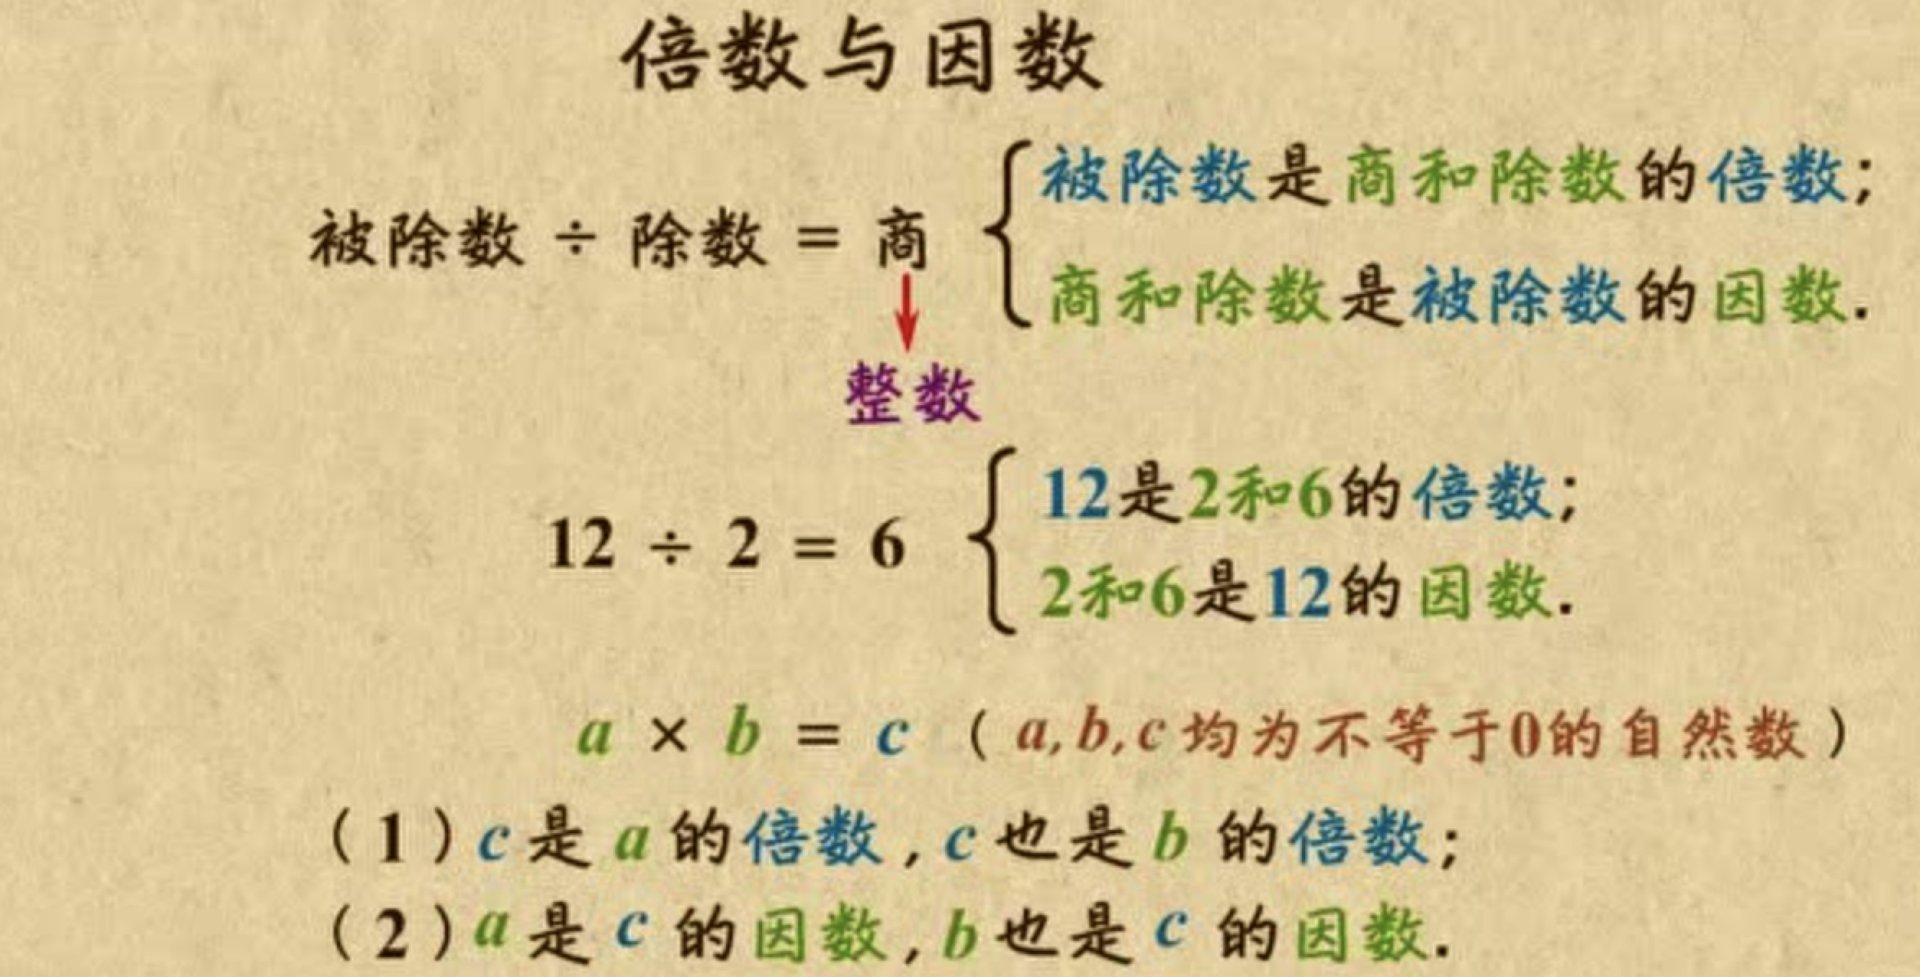 倍数与因数
被除数是商和除数的倍数;
被除数 ÷ 除数 = 商
商和除数是被除数的因数.
整数
12是2和6的倍数;
12 ÷ 2 = 6
2和6是12的因数.
a × b = c （a,b,c均为不等于0的自然数）
（1）c是a的倍数,c也是b的倍数;
（2）a是c的因数,b也是c的因数.